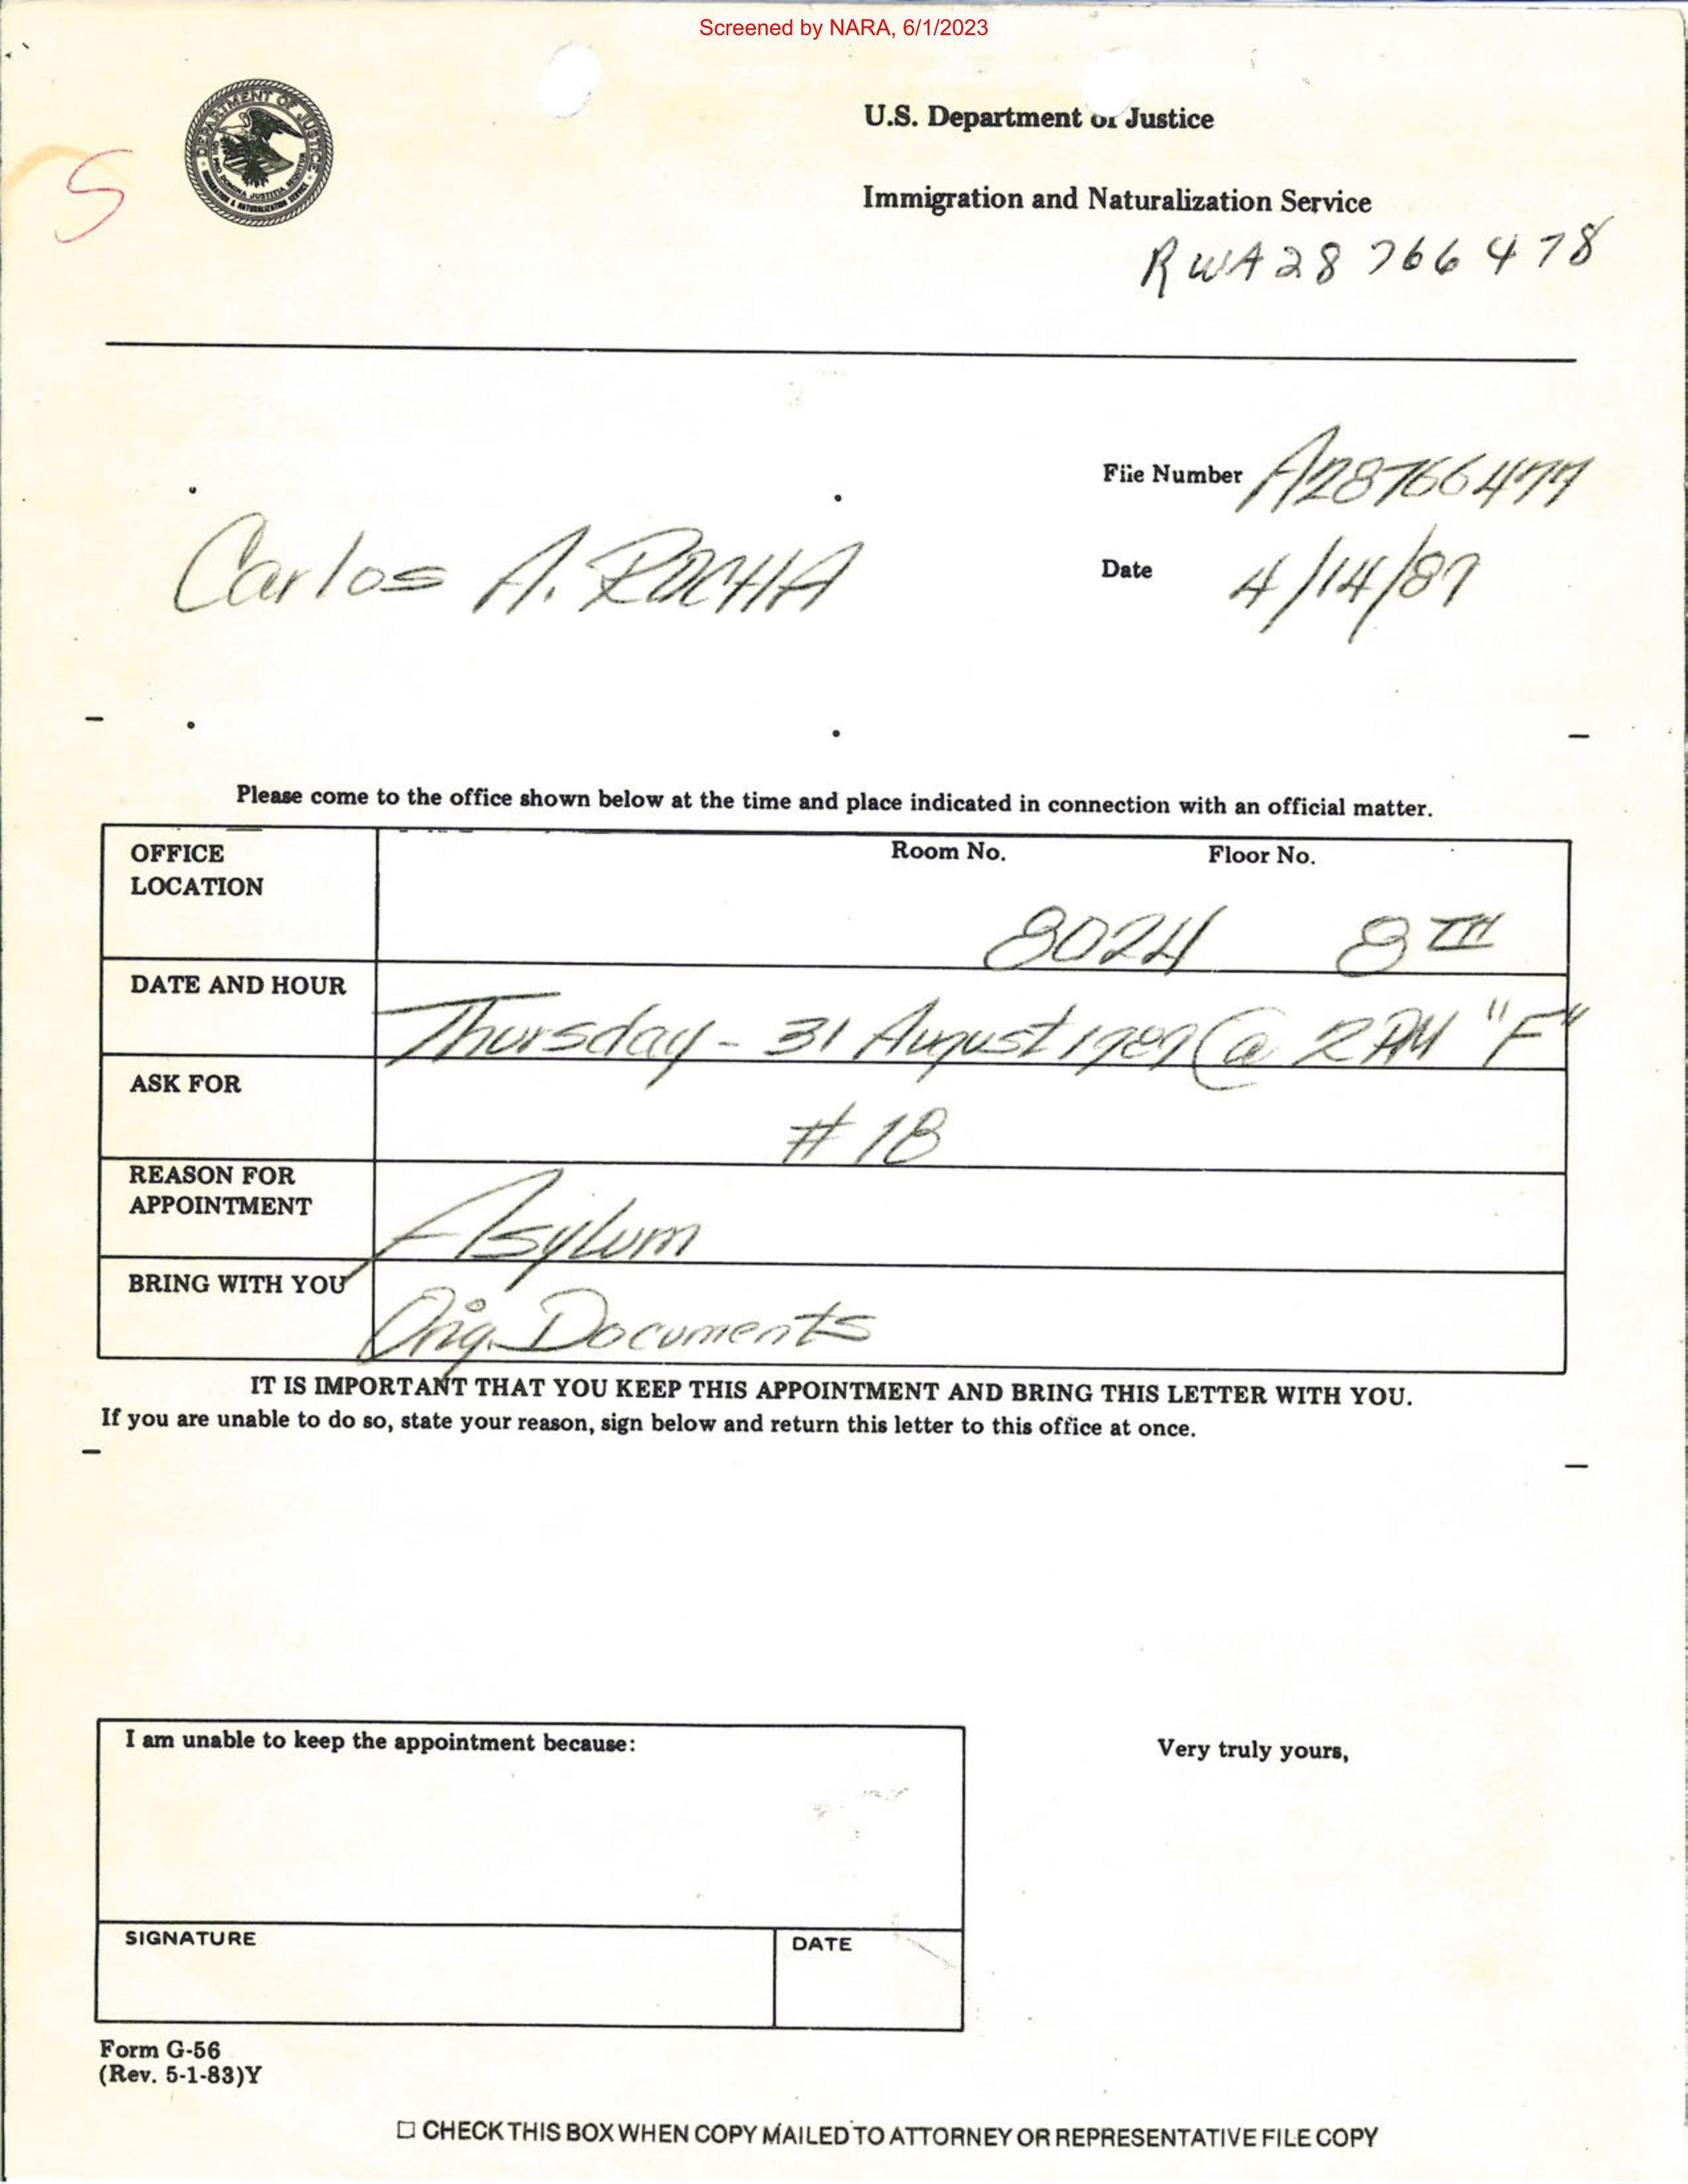 Screened by NARA, 6/1/2023
DEPARTMENT OF JUSTICE
QUI PRO DOMINA JUSTITIA SEQUITUR
IMMIGRATION & NATURALIZATION SERVICE
S
U.S. Department of Justice
Immigration and Naturalization Service
RWA28 766478
File Number A28766477
Carlos A. ROCHA
Date 4/14/89
Please come to the office shown below at the time and place indicated in connection with an official matter.
OFFICE LOCATION
Room No. 8024
Floor No. 8TH
DATE AND HOUR
Thursday - 31 August 1989 @ 2 PM "F"
ASK FOR
# 18
REASON FOR APPOINTMENT
Asylum
BRING WITH YOU
Orig. Documents
IT IS IMPORTANT THAT YOU KEEP THIS APPOINTMENT AND BRING THIS LETTER WITH YOU.
If you are unable to do so, state your reason, sign below and return this letter to this office at once.
I am unable to keep the appointment because:
Very truly yours,
SIGNATURE
DATE
Form G-56
(Rev. 5-1-83)Y
☐ CHECK THIS BOX WHEN COPY MAILED TO ATTORNEY OR REPRESENTATIVE FILE COPY